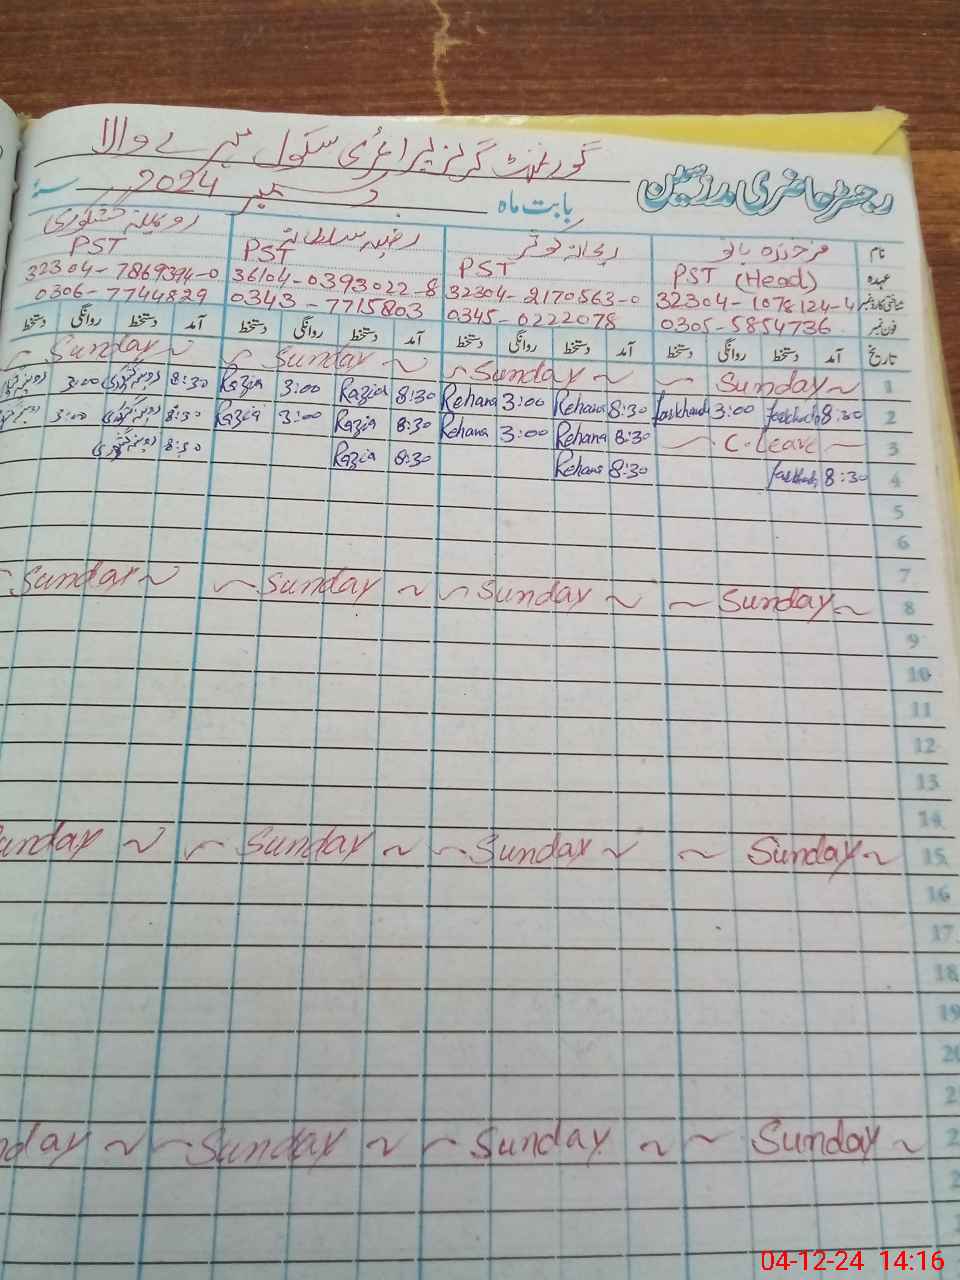 گورنمنٹ گرلز پرائمری سکول والا
رجسٹر حاضری مدرسین
بابت ماہ دسمبر 2024 سنہ
نام فرخندہ بانو ریحانہ کوثر رضیہ سلطانہ روبینہ
عہدہ PST (Head) PST PST PST
شناختی کارڈ نمبر 32304-1078124-4 32304-2170563-0 36104-0393022-8 32304-7869394-0
فون نمبر 0305-5854736 0345-0222078 0343-7715803 0306-7744829
تاریخ آمد دستخط روانگی دستخط آمد دستخط روانگی دستخط آمد دستخط روانگی دستخط آمد دستخط روانگی دستخط
1 ~ Sunday ~ ~ Sunday ~ ~ Sunday ~ ~ Sunday ~
2 8:30 3:00 8:30 Rehana 3:00 Rehana 8:30 Razia 3:00 Razia 8:30 3:00
3 ~ C.Leave ~ 8:30 Rehana 3:00 Rehana 8:30 Razia 3:00 Razia 8:30 3:00
4 8:30 8:30 Rehana 8:30 Razia 8:30
5
6
7
8 ~ Sunday ~ ~ Sunday ~ ~ Sunday ~ ~ Sunday ~
9
10
11
12
13
14
15 ~ Sunday ~ ~ Sunday ~ ~ Sunday ~ Sunday ~
16
17
18
19
20
2
2 ~ Sunday ~ ~ Sunday ~ ~ Sunday ~ nday ~
2
04-12-24 14:16